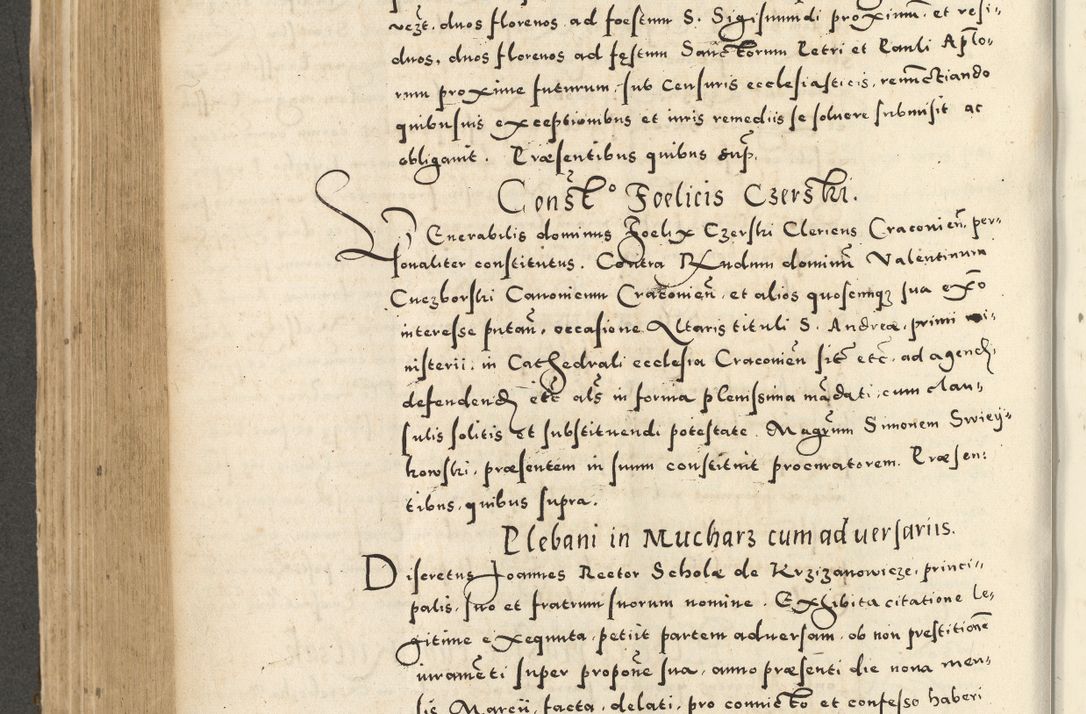 vezt. duos florenos ad foestum S. Sigismundi proximũ. et resi-
duos, duos florenos ad fęstum Sanctorum Petri et Pauli Aplo-
rum proxime futurum, sub censuris ecclesiasticis, renunctiando
quibusuis exceptionibus et iuris remediis se soluere submisit ac
obligauit. Præsentibus quibus sup.
Const.º Foelicis Czerski.
Venerabilis dominus Foelix Czerski Clericus Craconieñ. per-
sonaliter constitutus. Contra Rñdum dominũ Valentinum
Cuczborski Canonicum Cracouieñ, et alios quoscunqz sua exo
interesse putañ, occasione Altaris tituli S. Andreæ, primi mi-
nisterii, in Cathedrali ecclesia Craconieñ sit etc. ad agend.
defendend etc als in forma plenissima mãdati, cum clau-
sulis solitis et substituendi potestate. Magrum Simonem Swiey-
kowski, præsentem in suum constituit procuratorem. Præsen-
tibus, quibus supra.
Plebani in Mucharz cum aduersariis.
Discretus Joannes Rector Scholæ de Krzizanowicze, princi-
palis, suo et fratrum suorum nomine. Exhibita citatione le-
gitime exequuta, petiit partem aduersam, ob non prestitionẽ
iuramẽti super propoñe sua, anno præsenti die nona men-
sis Marcii, facta, delati, pro conuicto et confesso haberi